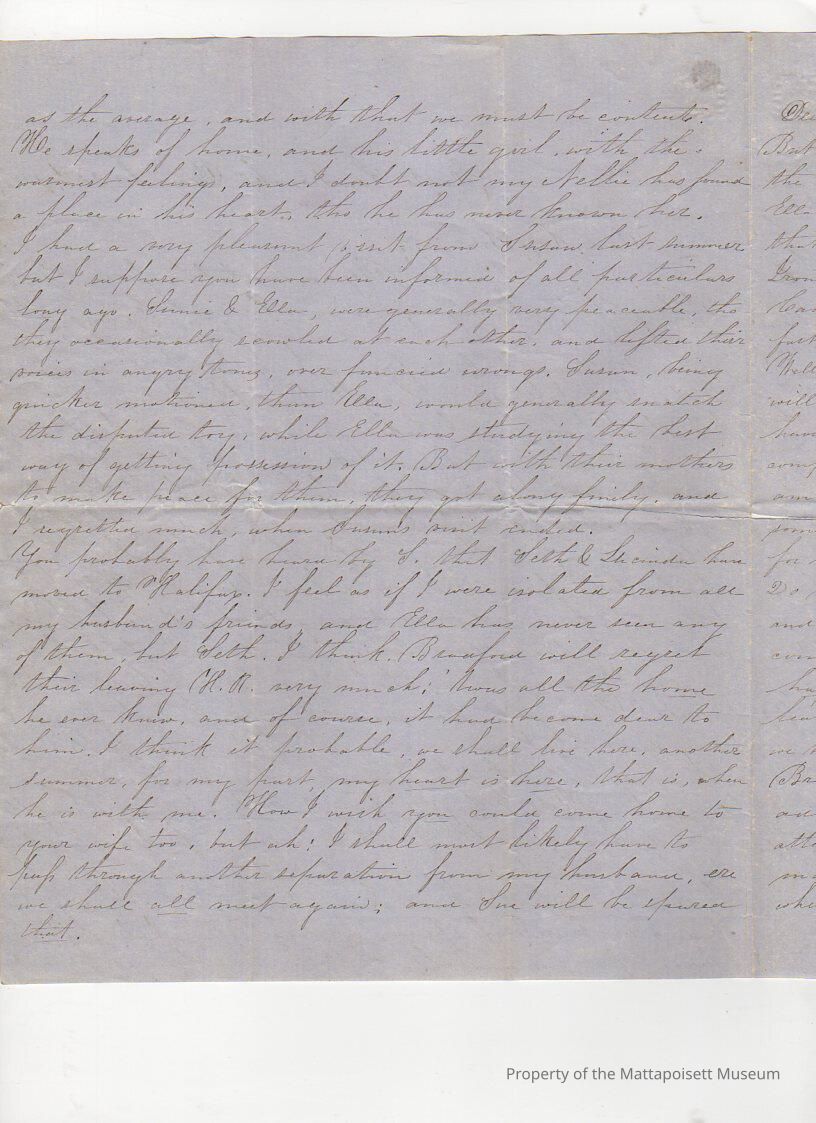 as the average, and with that we must be content.
He speaks of home, and his little girl, with the
warmest feelings, and I doubt not my Nellie has found
a place in his heart, tho he has never known her.
I had a very pleasant visit from Susan last summer
but I suppose you have been informed of all particulars
long ago. Susie & Ella, were generally very peaceable, tho
they occasionally scowled at each other, and lifted their
voices in angry tones, over fancied wrongs. Susan, being
quicker motioned, than Ella, would generally snatch
the disputed toy, while Ella was studying the best
way of getting possession of it. But with their mothers
to make peace for them, they got along finely, and
I regretted much, when Susans visit ended.
You probably have heard by S. that Seth & Lucinda have
moved to Halifax. I feel as if I were isolated from all
my husband's friends, and Ella has never seen any
of them, but Seth. I think Bradford will regret
their leaving N.R. very much; 'twas all the home
he ever knew, and of course, it had become dear to
him. I think it probable, we shall live here, another
summer, for my part, my heart is here, that is, when
he is with me. How I wish you could come home to
your wife too, but ah! I shall most likely have to
pass through another separation from my husband, ere
we shall all meet again; and Sue will be spared
that.
But
the
Ella
that
will
have
am
for
Do
and
we
Br
Property of the Mattapoisett Museum